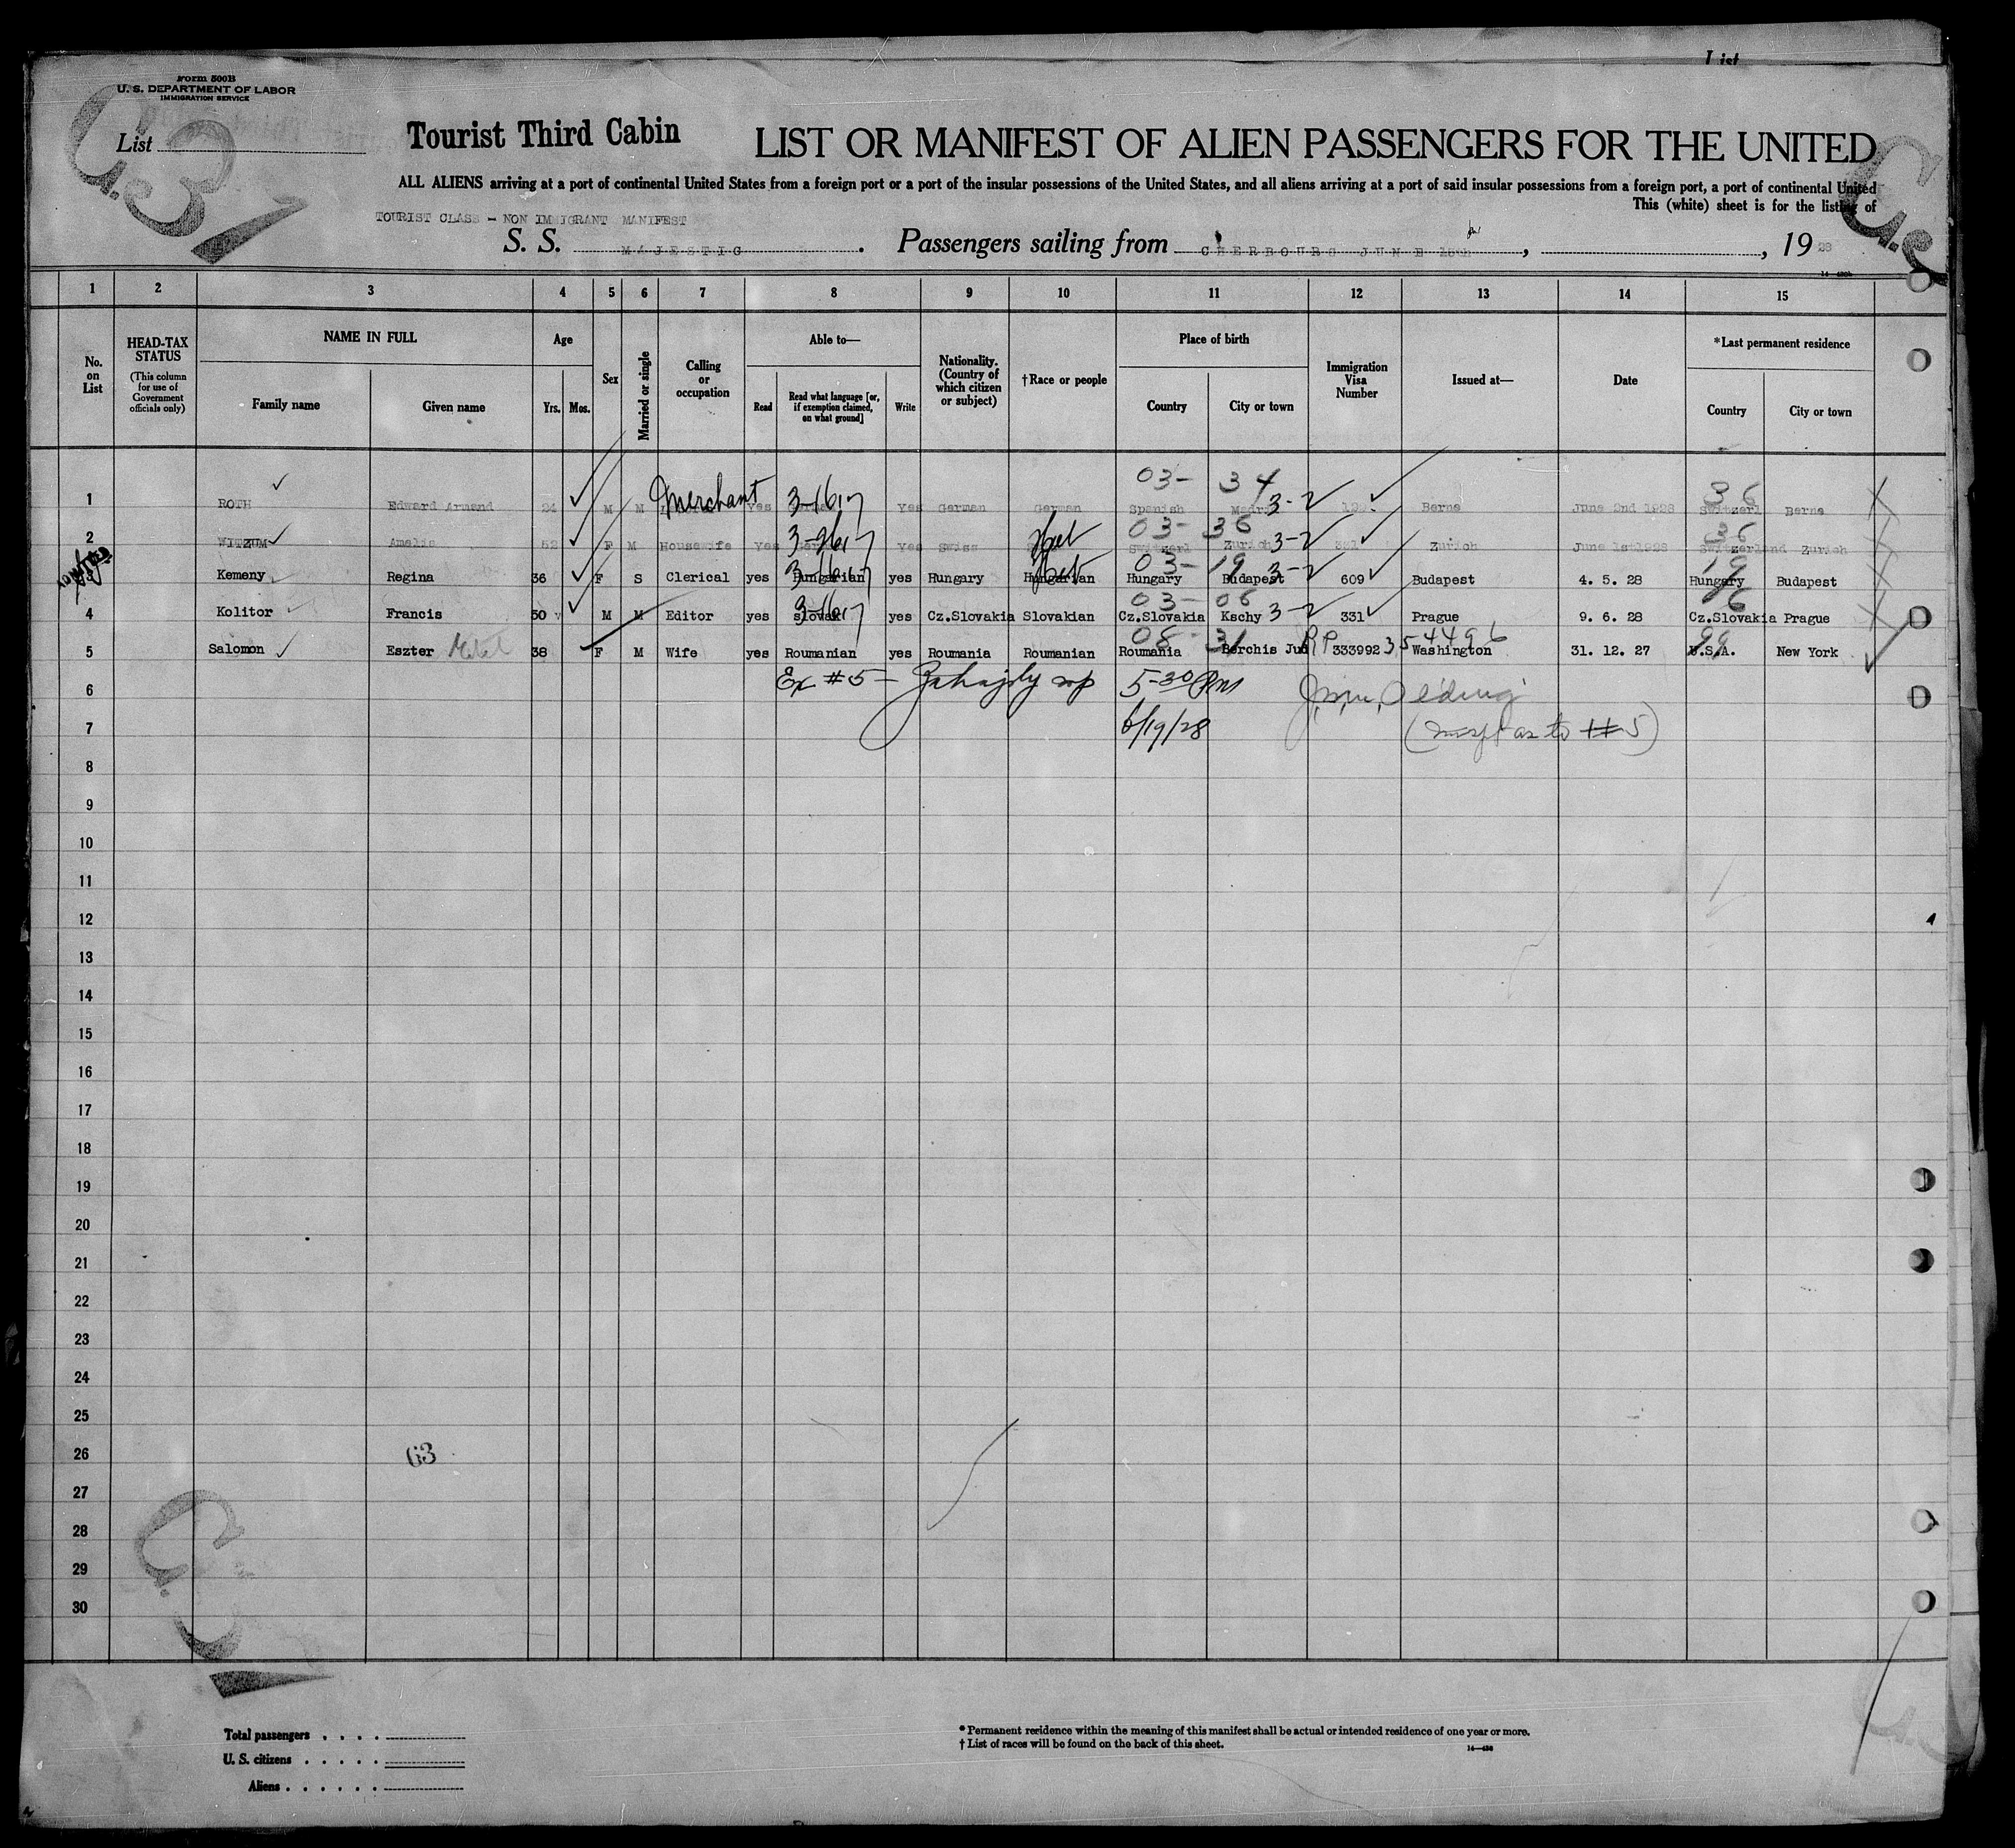 List
Form 500B
U. S. DEPARTMENT OF LABOR
IMMIGRATION SERVICE
List
Tourist Third Cabin
LIST OR MANIFEST OF ALIEN PASSENGERS FOR THE UNITED
ALL ALIENS arriving at a port of continental United States from a foreign port or a port of the insular possessions of the United States, and all aliens arriving at a port of said insular possessions from a foreign port, a port of continental United
This (white) sheet is for the listing of
TOURIST CLASS - NON IMMIGRANT MANIFEST
S. S. MAJESTIC. Passengers sailing from CHERBOURG JUNE, , 1928
1 2 3 4 5 6 7 8 9 10 11 12 13 14 15
No. on List
HEAD-TAX STATUS
(This column for use of Government officials only)
NAME IN FULL
Family name Given name
Age
Yrs. Mos.
Sex
Married or single
Calling or occupation
Able to—
Read Read what language [or, if exemption claimed, on what ground] Write
Nationality. (Country of which citizen or subject)
†Race or people
Place of birth
Country City or town
Immigration Visa Number
Issued at—
Date
*Last permanent residence
Country City or town
03- 34 36
1 ROTH Edward Armand 24 M M Merchant Yes 3-16-17 Yes German German Spanish 3-2 Berne June 2nd 1928 Switzerl Berne
03- 36 36
2 WITZUM Amelie 52 F M Housewife Yes Yes Swiss Switzerl Zurich 3-2 Zurich June 1st 1928 Switzerland Zurich
03- 19 19
3 Kemeny Regina 36 F S Clerical yes Hungarian yes Hungary Hungarian Hungary Budapest 3-2 609 Budapest 4. 5. 28 Hungary Budapest
03- 06 6
4 Kolitor Francis 50 M M Editor yes slovak yes Cz.Slovakia Slovakian Cz.Slovakia Kschy 3-2 331 Prague 9. 6. 28 Cz.Slovakia Prague
08- 31 RP 354496 99
5 Salomon Eszter 38 F M Wife yes Roumanian yes Roumania Roumanian Roumania Berchis Jud 333992 Washington 31. 12. 27 U.S.A. New York
Ex #5 — 5-30 Pm
6
6/19/28 as to #5)
7
8
9
10
11
12
13
14
15
16
17
18
19
20
21
22
23
24
25
26 63
27
28
29
30
Total passengers . . . .
U. S. citizens . . . . .
Aliens . . . . . .
* Permanent residence within the meaning of this manifest shall be actual or intended residence of one year or more.
† List of races will be found on the back of this sheet.